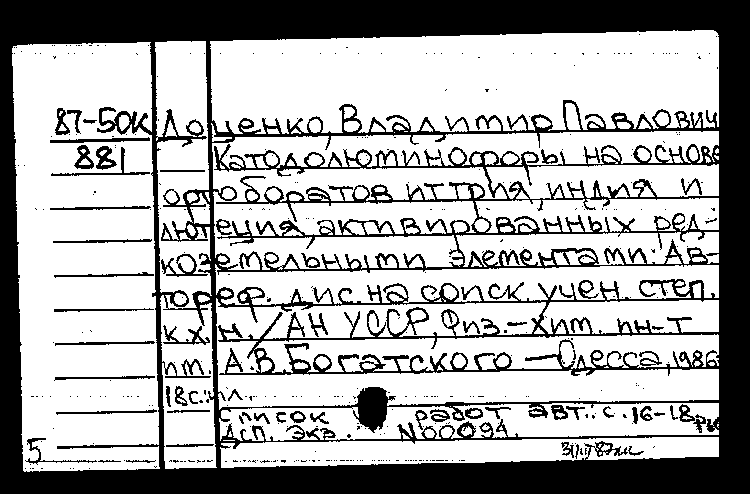 87-50К Доценко, Владимир Павлович
881 Католюминофоры на основе
ортоборатов иттрия, индия и
лютеция, активированных ред-
коземельными элементами: Ав-
тореф. дис. на соиск. учен. степ.
к.х.н. / АН УССР, Физ.-хим. ин-т
им. А.В. Богатского - Одесса, 1986
18 с. ил.
Список работ авт.: с. 16-18
Дсп. Экз. N00094.
5